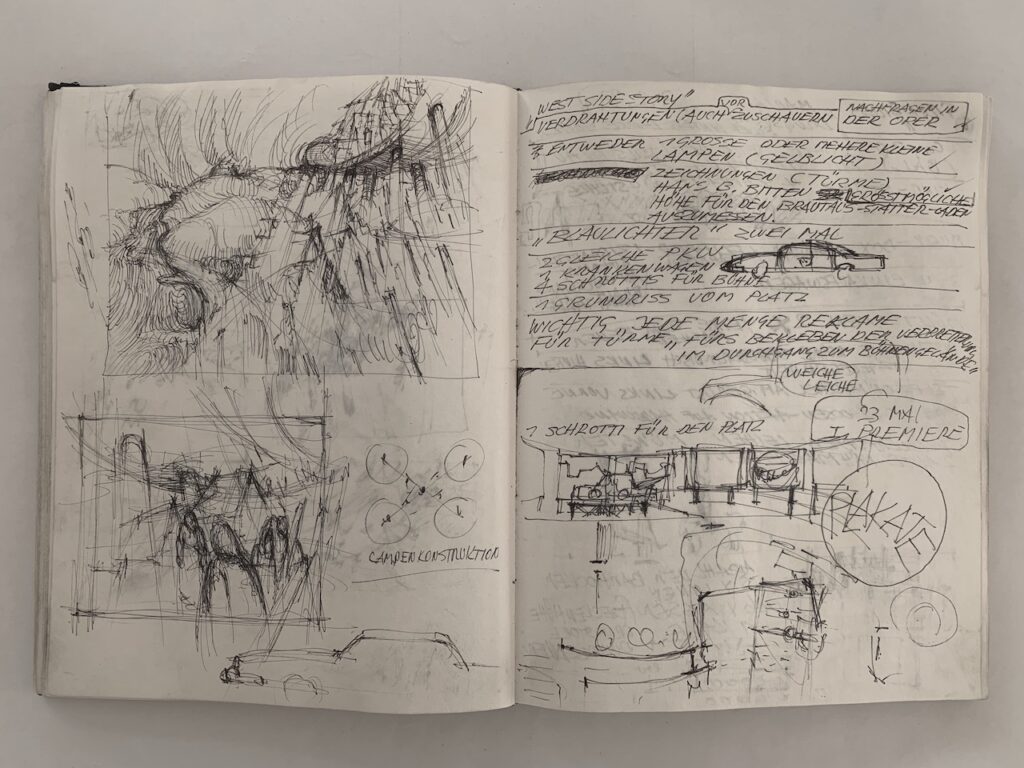 LAMPENKONSTRUKTION
"WEST SIDE STORY"
VERDRAHTUNGEN (AUCH VOR ZUSCHAUERN
NACHFRAGEN IN
DER OPER
ENTWEDER 1 GROSSE ODER MEHERE KLEINE
LAMPEN (GELBLICHT)
ZEICHNUNGEN (TÜRME)
HANS B. BITTEN GRÖSTMÖGLICHE
HÖHE FÜR DEN
AUSZUMESSEN.
"BLAULICHTER" ZWEI MAL
2 GLEICHE PKW
KRANKENWAGEN
4 SCHROTTIS FÜR BÜHNE
1 GRUNDRISS VOM PLATZ
WICHTIG JEDE MENGE REKLAME
FÜR TÜRME, FÜRS BEKLEBEN DER
IM DURCHGANG ZUM BÜHNENGELÄNDE"
WEICHE
LEICHE
13 MAL
PREMIERE
1 SCHROTTI FÜR DEN PLATZ
PLAKATE